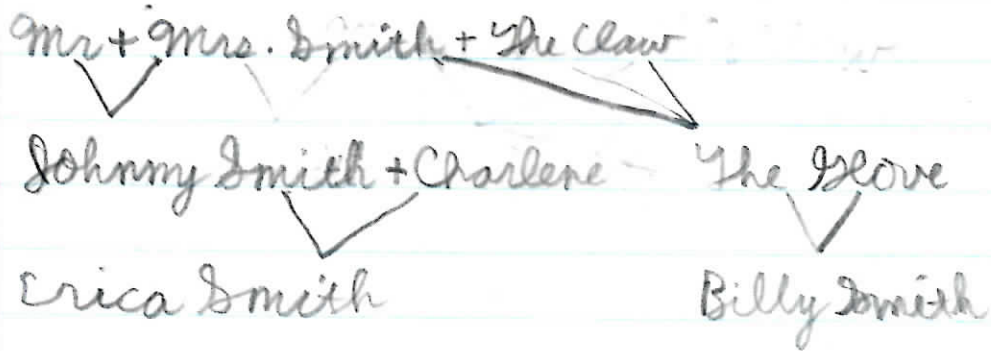 Mr + Mrs. Smith + The Claw
Johnny Smith + Charlene The Glove
Erica Smith Billy Smith